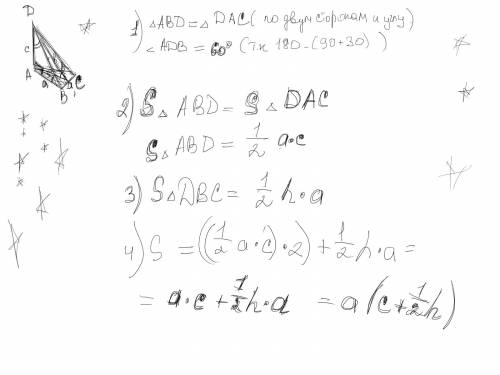 D
c
A
a
B
C
1) △ABD = △DAC (по двум сторонам и углу)
∠ADB = 60° (т.к 180-(90+30))
2) S△ABD = S△DAC
S△ABD = 1/2 a·c
3) S△DBC = 1/2 h·a
4) S = ((1/2 a·c)·2) + 1/2 h·a =
= a·c + 1/2 h·a = a(c+1/2h)